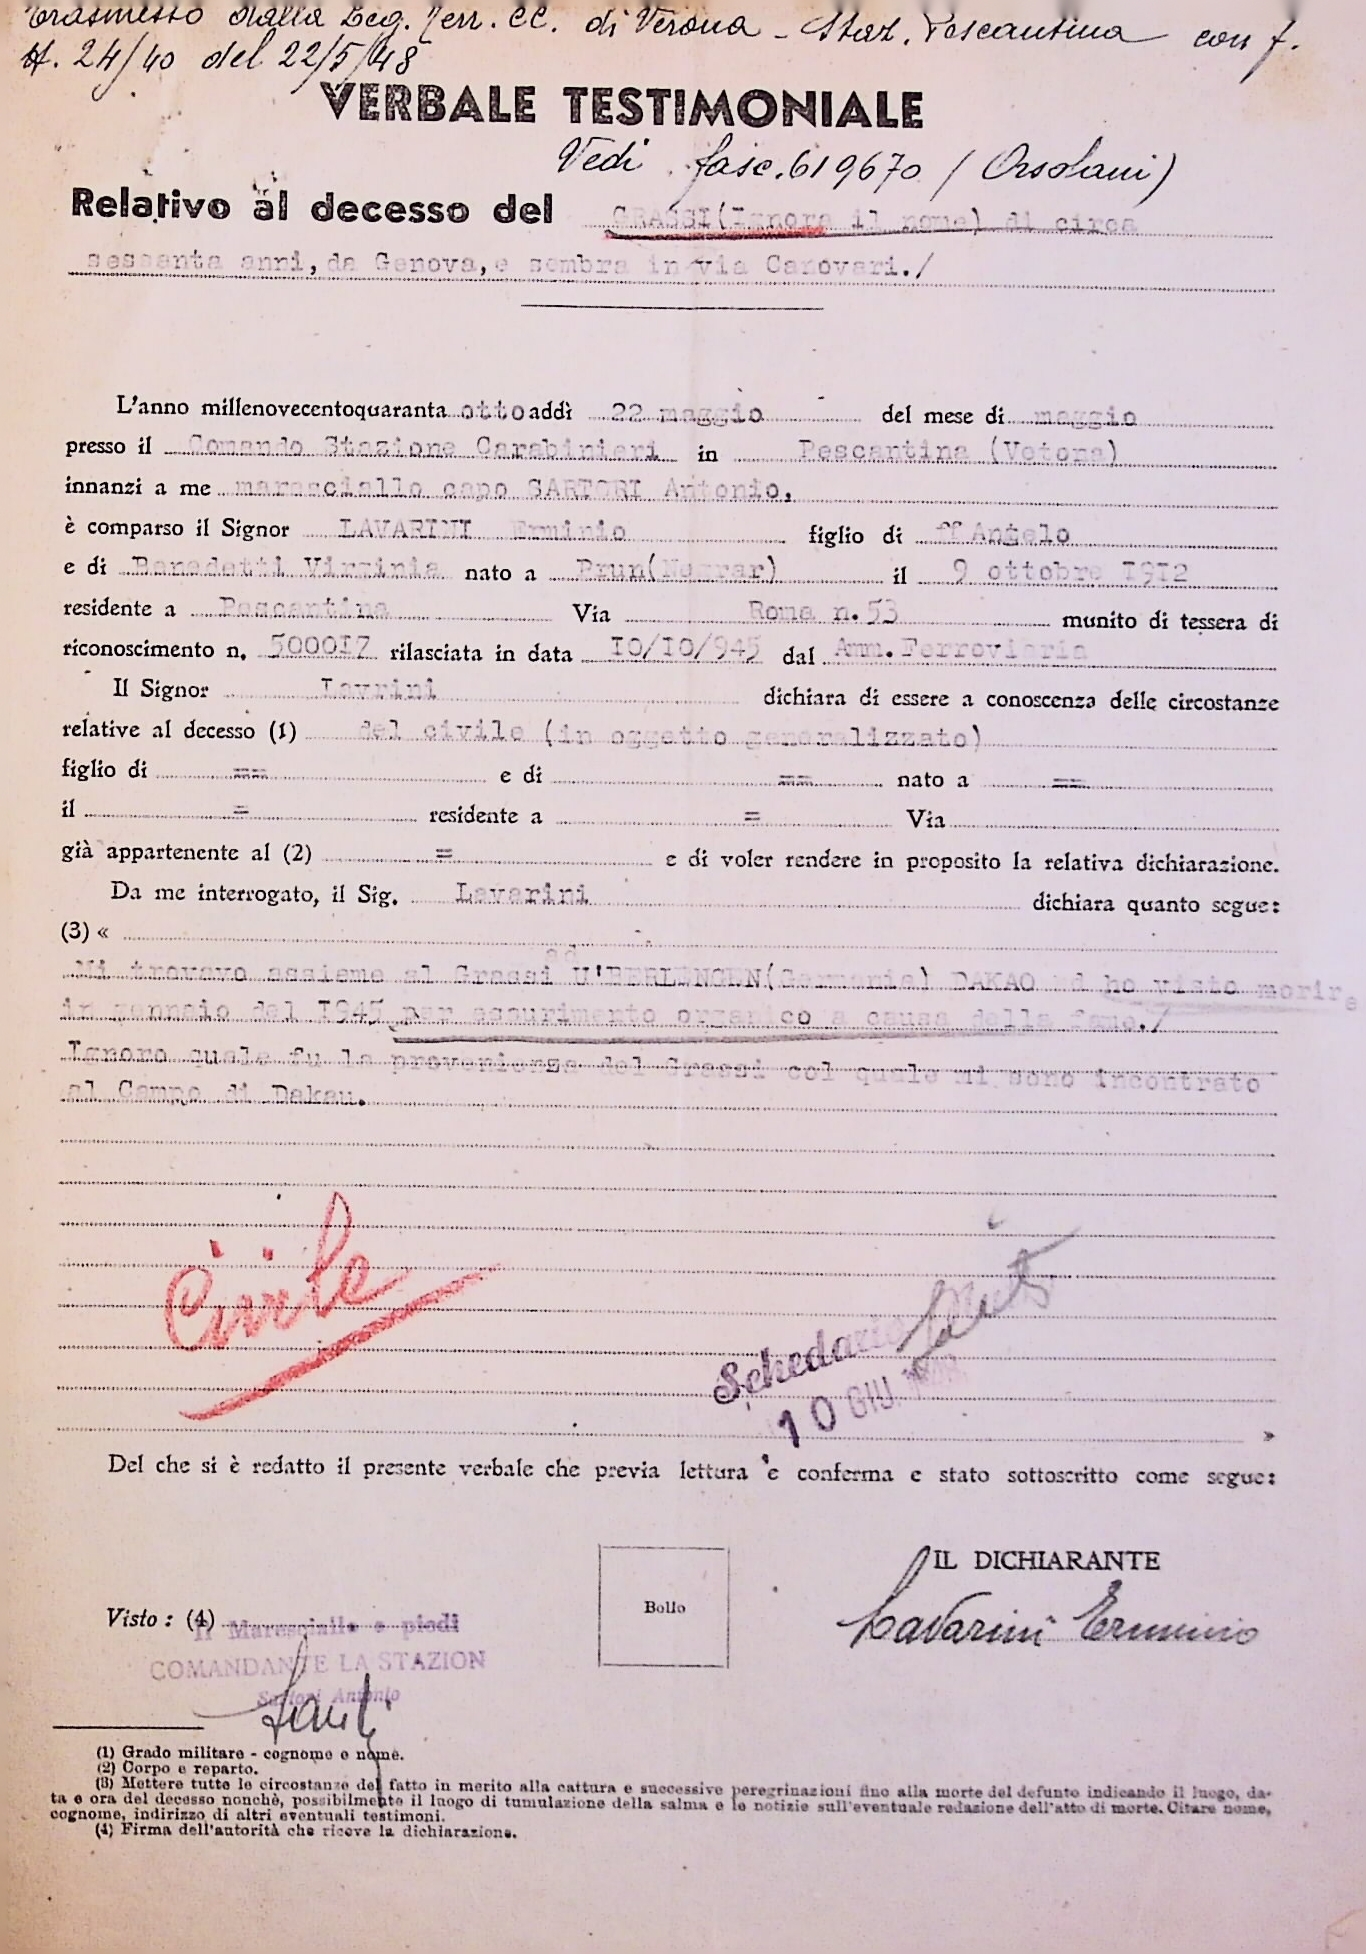 Trasmesso dalla Leg. Terr. CC. di Verona - Staz. Pescantina con f.
N. 24/40 del 22/5/48
VERBALE TESTIMONIALE
Vedi fasc. 619670 / (Orsolani)
Relativo al decesso del GRASSI(Ignora il nome) di circa
sessanta anni, da Genova, e sembra in via Canovari./
L'anno millenovecentoquaranta otto addì 22 maggio del mese di maggio
presso il Comando Stazione Carabinieri in Pescantina (Vetona)
innanzi a me maresciallo capo SARTORI Antonio,
è comparso il Signor LAVARINI Erminio figlio di ff Angelo
e di Benedetti Virginia nato a Prun(Negrar) il 9 ottobre I9I2
residente a Pescantina Via Roma n.53 munito di tessera di
riconoscimento n. 5000I7 rilasciata in data IO/IO/945 dal Amm.Ferroviaria
Il Signor Lavrini dichiara di essere a conoscenza delle circostanze
relative al decesso (1) del civile (in oggetto generalizzato)
figlio di == e di == nato a ==
il = residente a = Via
già appartenente al (2) = e di voler rendere in proposito la relativa dichiarazione.
Da me interrogato, il Sig. Lavarini dichiara quanto segue:
(3) «
Mi trovavo assieme al Grassi ad U'BERLINGEN(Germania) DAKAO ed ho visto morire
in gennaio del I945 per esaurimento organico a causa della fame./
Ignoro quale fu la provenienza del Grassi col quale mi sono incontrato
al Campo di Dakau.
Civile
Schedario
10 GIU.
»
Del che si è redatto il presente verbale che previa lettura e conferma e stato sottoscritto come segue:
IL DICHIARANTE
Bollo
Visto : (4) Il Maresciallo a piedi
Lavarini Erminio
COMANDANTE LA STAZION
Sartori Antonio
(1) Grado militare - cognome e nome.
(2) Corpo e reparto.
(3) Mettere tutte le circostanze del fatto in merito alla cattura e successive peregrinazioni fino alla morte del defunto indicando il luogo, da-
ta e ora del decesso nonchè, possibilmente il luogo di tumulazione della salma e le notizie sull'eventuale redazione dell'atto di morte. Citare nome,
cognome, indirizzo di altri eventuali testimoni.
(4) Firma dell'autorità che riceve la dichiarazione.